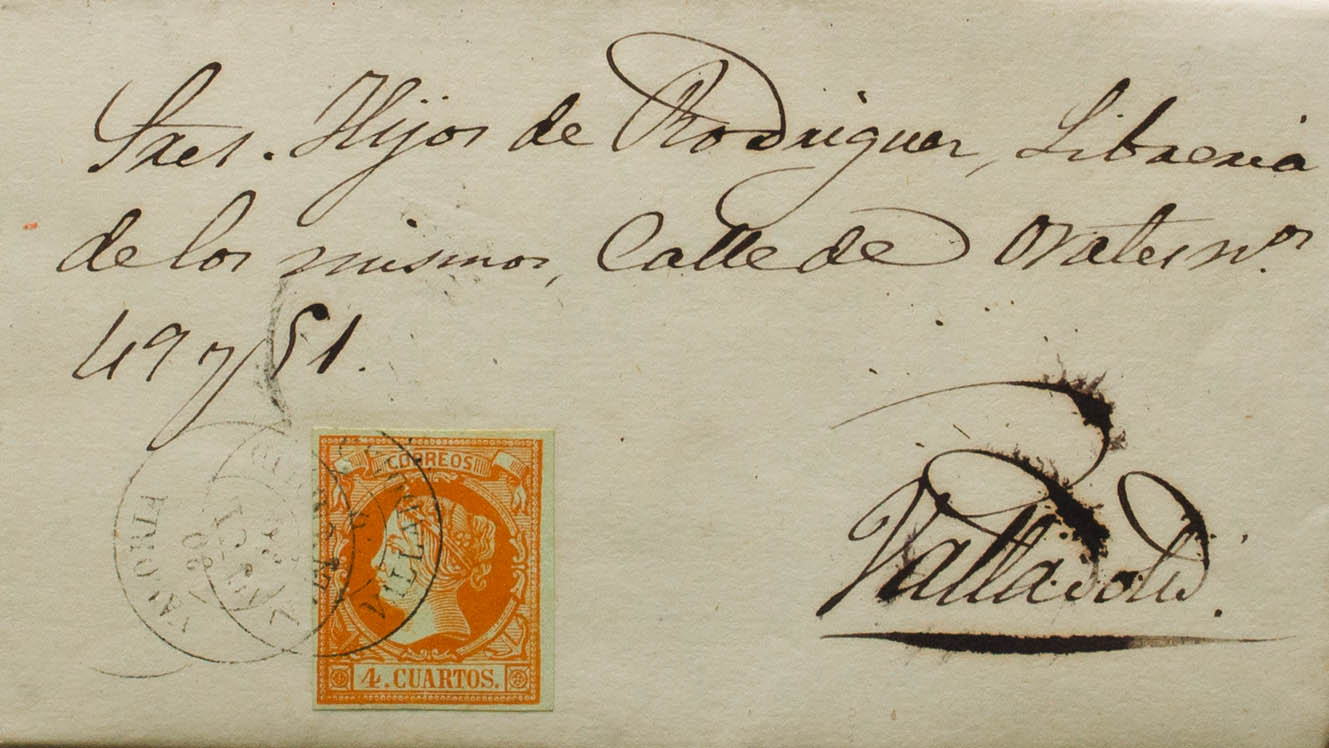 Sres. Hijos de Rodriguez, Libreria
de los mismos, Calle de Orates nos
49 y 51.
Valladolid.
CORREOS
4. CUARTOS.
VALORIA
60